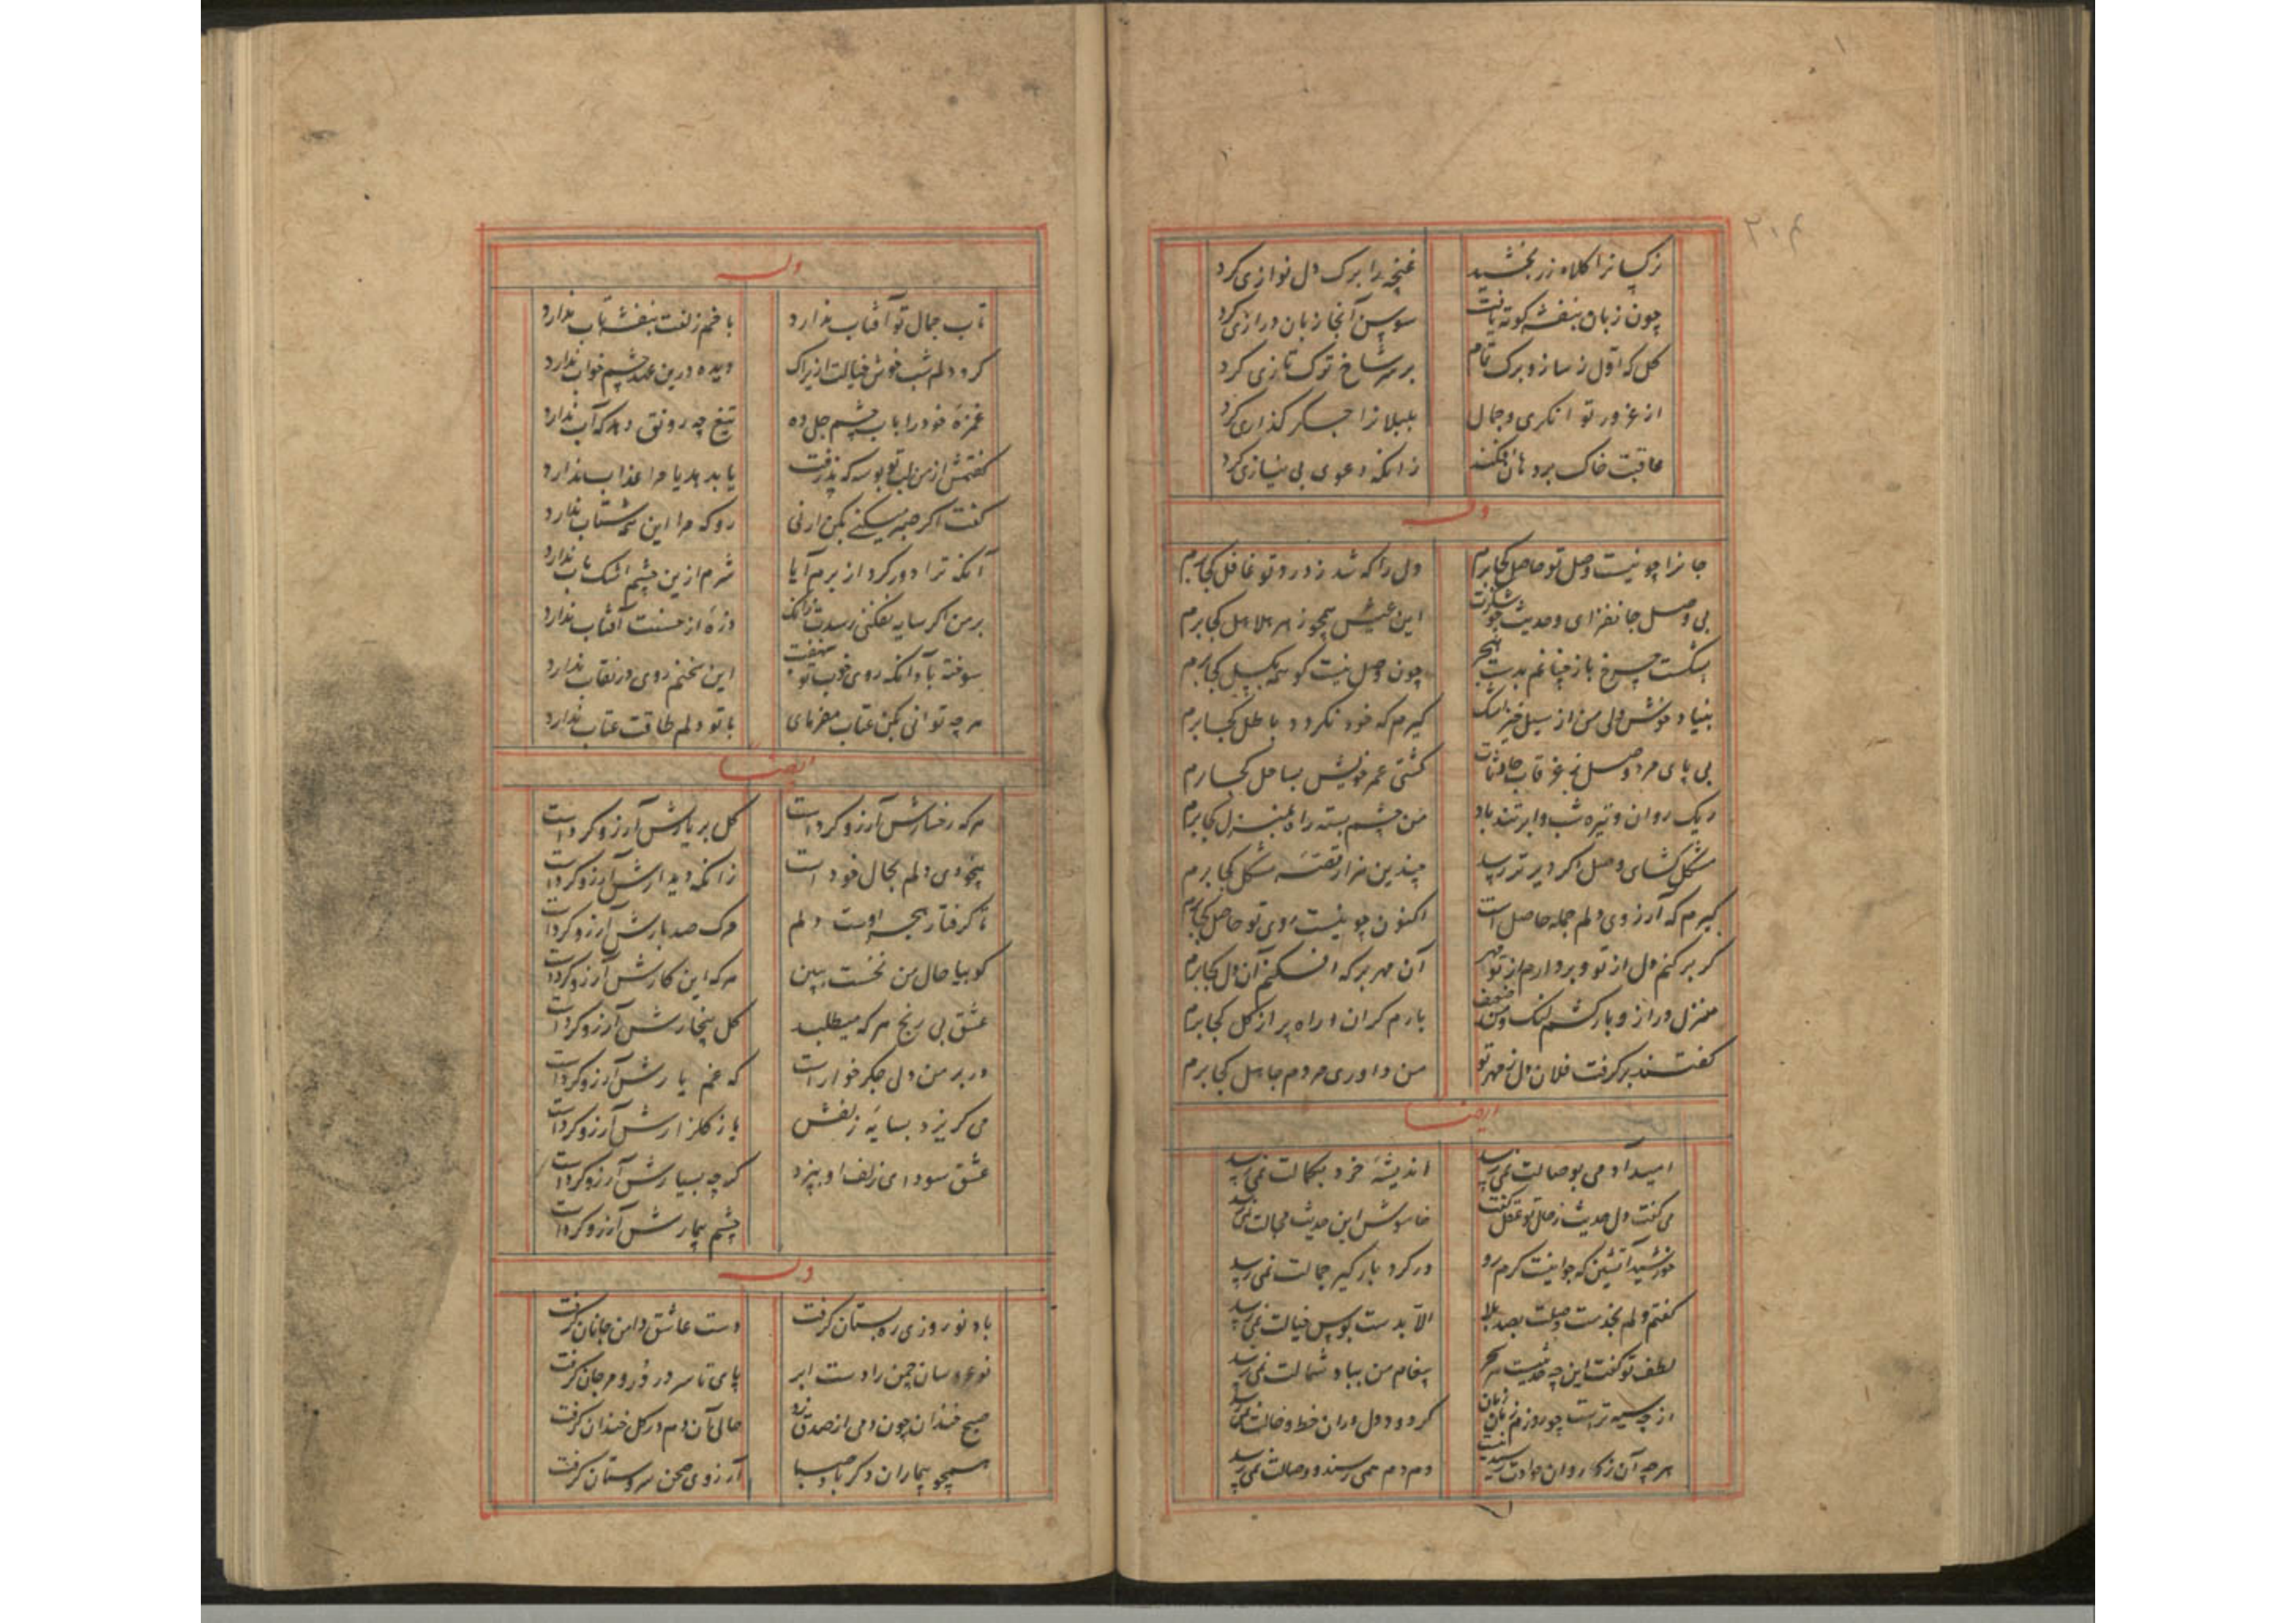 نرکسانرا کلاه زر بخشید
غنچه را برک دل نوازی کرد
چون زبان بنفشه کوته یافت
سوسن آنجا زبان درازی کرد
کل که اول ز ساز و برک تمام
بر سر شاخ ترک تازی کرد
از غرور توانکری و جمال
بلبلانرا جگر کدازی کرد
عاقبت خاک بر دهان فکند
زانکه دعوی بی نیازی کرد
وله
جانرا چو نیست وصل تو حاصل کجا برم
دل را که شد ز درد تو غافل کجا برم
بی وصل جانفزای و حدیث چو شکرت
این عیش همچو زهر هلاهل کجا برم
بشکست چرخ باز چنانم بدست هجر
چون وصل نیست کوشمه بکسل کجا برم
بنیاد خونش ولی من از سیل خیز اشک
کیرم که خود نکردد باطل کجا برم
بی پای مرد وصل ز غرقاب حادثات
کشتی عمر خویش بساحل کجا برم
ریک روان و تیره شب و ابر تند باد
من چشم بسته راه بمنزل کجا برم
مشکل کشای وصل اکر دیرتر رسد
چندین هزار قصه مشکل کجا برم
کیرم که آرزوی دلم جمله حاصل است
اکنون چو نیست روی تو حاصل کجا برم
کر بر کنم دل از تو و بردارم از تو مهر
آن مهر بر که افکنم آن دل کجا برم
منزل دراز و بارکشم لنک و من ضعیف
بارم کران و راه پر از کل کجا برم
کفتند بر کرفت فلان دل ز مهر تو
من داوری مردم جاهل کجا برم
ایضا
امید آدمی بوصالت نمی رسد
اندیشه خرد بکمالت نمی رسد
می کفت دل حدیث ز حال تو عقل کفت
خاموش این حدیث مجالت نمی رسد
خورشید آتشین که جوابیت کرم رو
در کرد بار کیر جمالت نمی رسد
کفتم دلم بخدمت وصلت بصد بلا
الا بدست بوس خیالت نمی رسد
لطف تو کفت این چه حدیثیست هر سحر
پیغام من بباد شمالت نمی رسد
از چه سیه ترست چو روزم زمان زمان
کر دود دل دران خط و خالت نمی رسد
هر چه آن ز کاروان حوادث رسیدنیست
دم دم همی رسند و وصالت نمی رسد
وله
تاب جمال تو آفتاب ندارد
با خم زلفت بنفشه تاب ندارد
کرد دلم شب خوش خیالت ازیراک
دیده درین عهد چشم خواب ندارد
غمزه خود را بآب چشم جلی ده
تیغ چه رونق دهد که آب ندارد
کفتمش از من لب تو بوسه که پذرفت
یا بدهد یا مرا عذاب ندارد
کفت اکر صبر میکنی بکن ار نی
رو که مرا این همه شتاب ندارد
آنکه ترا دور کرد از برم آیا
شرم ازین چشم اشک یاب ندارد
بر من اکر سایه نفکنی رسدت زانک
ذره از حسنت آفتاب ندارد
سوخته باد آنکه روی خوب تو بنهفت
این سخنم روی در نقاب ندارد
هر چه توانی بکن عتاب مفرمای
با تو دلم طاقت عتاب ندارد
ایضا
هر که رخسارش آرزو کردست
کل بربارش آرزو کردست
بیخودی دلم بجال خود است
زانکه دیدارش آرزو کردست
تا کرفتار هجر اوست دلم
مرک صد بارش آرزو کردست
کو بیا حال من نخست ببین
هر که این کارش آرزو کردست
عشق بی رنج هر که میطلبد
کل بیخارش آرزو کردست
در بر من دلی جکر خوارست
که غم یارش آرزو کردست
می کریزد بسایه زلفش
باز کلزارش آرزو کردست
عشق سودای زلف او بپزد
کر چه بسیارش آرزو کردست
چشم بیمارش آرزو کردست
وله
باد نوروزی ره بستان کرفت
دست عاشق دامن جانان کرفت
نوعروسان چمن را دست ابر
پای تا سر در در و مرجان کرفت
صبح خندان چون دمی از صدق زد
حالی آن دم در کل خندان کرفت
همچو بیماران دکر باد صبا
آرزوی صحن سروستان کرفت